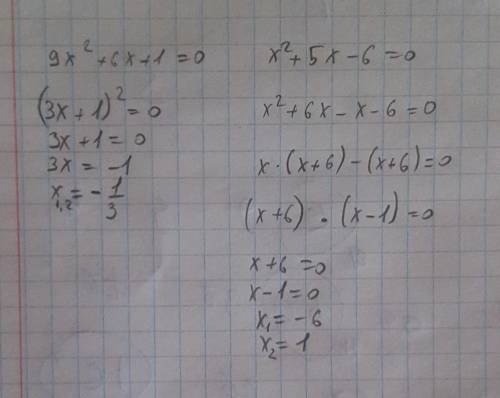 9x² + 6x + 1 = 0
(3x + 1)² = 0
3x + 1 = 0
3x = -1
x₁,₂ = - 1/3
x² + 5x - 6 = 0
x² + 6x - x - 6 = 0
x · (x + 6) - (x + 6) = 0
(x + 6) · (x - 1) = 0
x + 6 = 0
x - 1 = 0
x₁ = -6
x₂ = 1